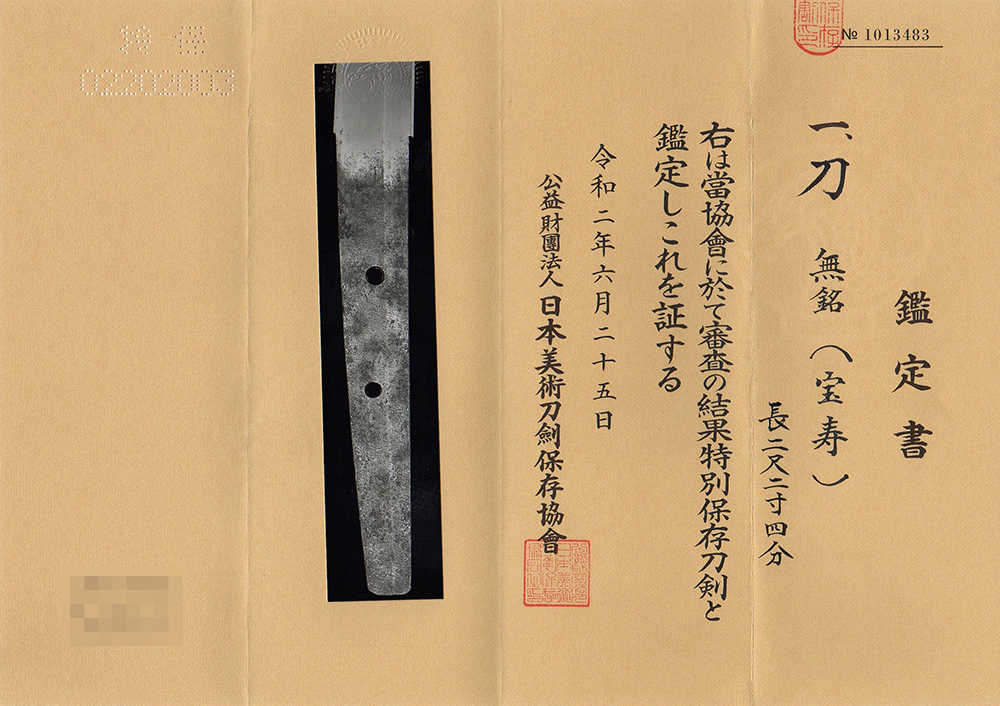 № 1013483
鑑定書
一、刀 無銘(宝寿)
長二尺二寸四分
右は當協會に於て審査の結果特別保存刀剣と
鑑定しこれを証する
令和二年六月二十五日
公益財團法人日本美術刀劍保存協會
02202003